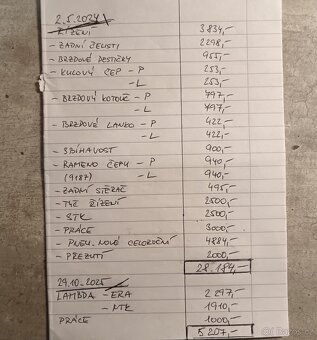 2.5.2024
ŘÍZENÍ 3834,-
- ZADNÍ ČELISTI 2298,-
- BRZDOVÉ DESTIČKY 955,-
- KULOVÝ ČEP - P 253,-
- L 253,-
- BRZDOVÝ KOTOUČ - P 797,-
- L 797,-
- BRZDOVÉ LANKO - P 422,-
- L 422,-
- SBÍHAVOST 900,-
- RAMENO ČEPU - P 940,-
(9187) - L 940,-
- ZADNÍ STĚRAČ 495,-
- TYČ ŘÍZENÍ 2500,-
- STK 2500,-
- PRÁCE 3000,-
- PNEU. NOVÉ CELOROČNÍ 4884,-
- PŘEZUTÍ 2000,-
28.184,-
29.10.2025
LAMBDA - ERA 2297,-
- NTK 1910,-
PRÁCE 1000,-
5207,-